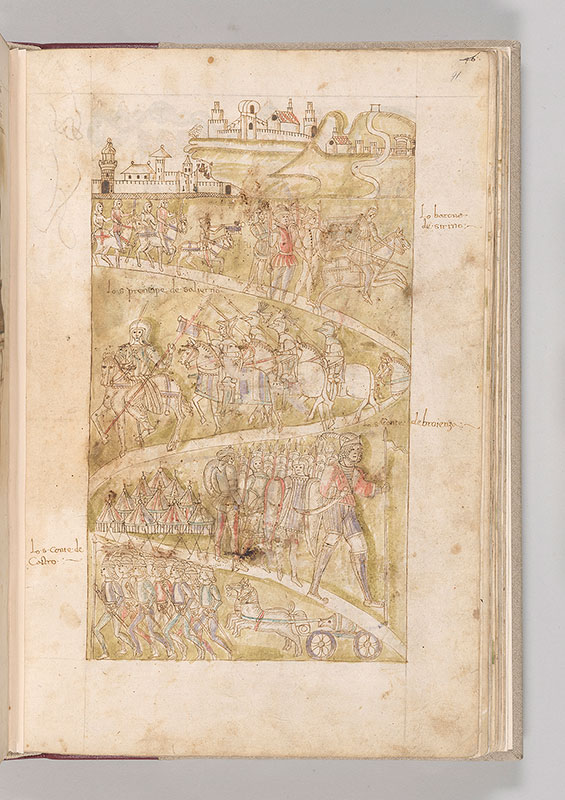 96
11
Lo barone
de sirino
Lo s. prencipe de salerno
Lo s. conte de braienza
Lo s. conte de
Castro